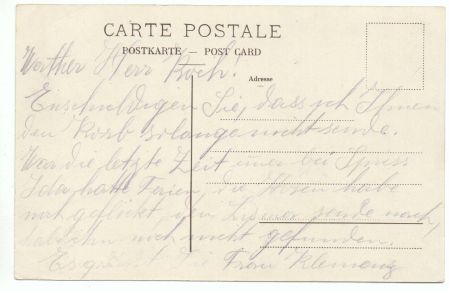 CARTE POSTALE
POSTKARTE — POST CARD
Adresse
Werther Herr Koch!
Entschuldigen Sie, dass ich Ihnen
den Korb so lange nicht sende.
War die letzte Zeit immer bei
Ida hatte Ferien, die Hosen habe
noch geflickt, den sende nach,
hab ihn noch nicht gefunden.
Es grüsst Sie Frau Klemenz